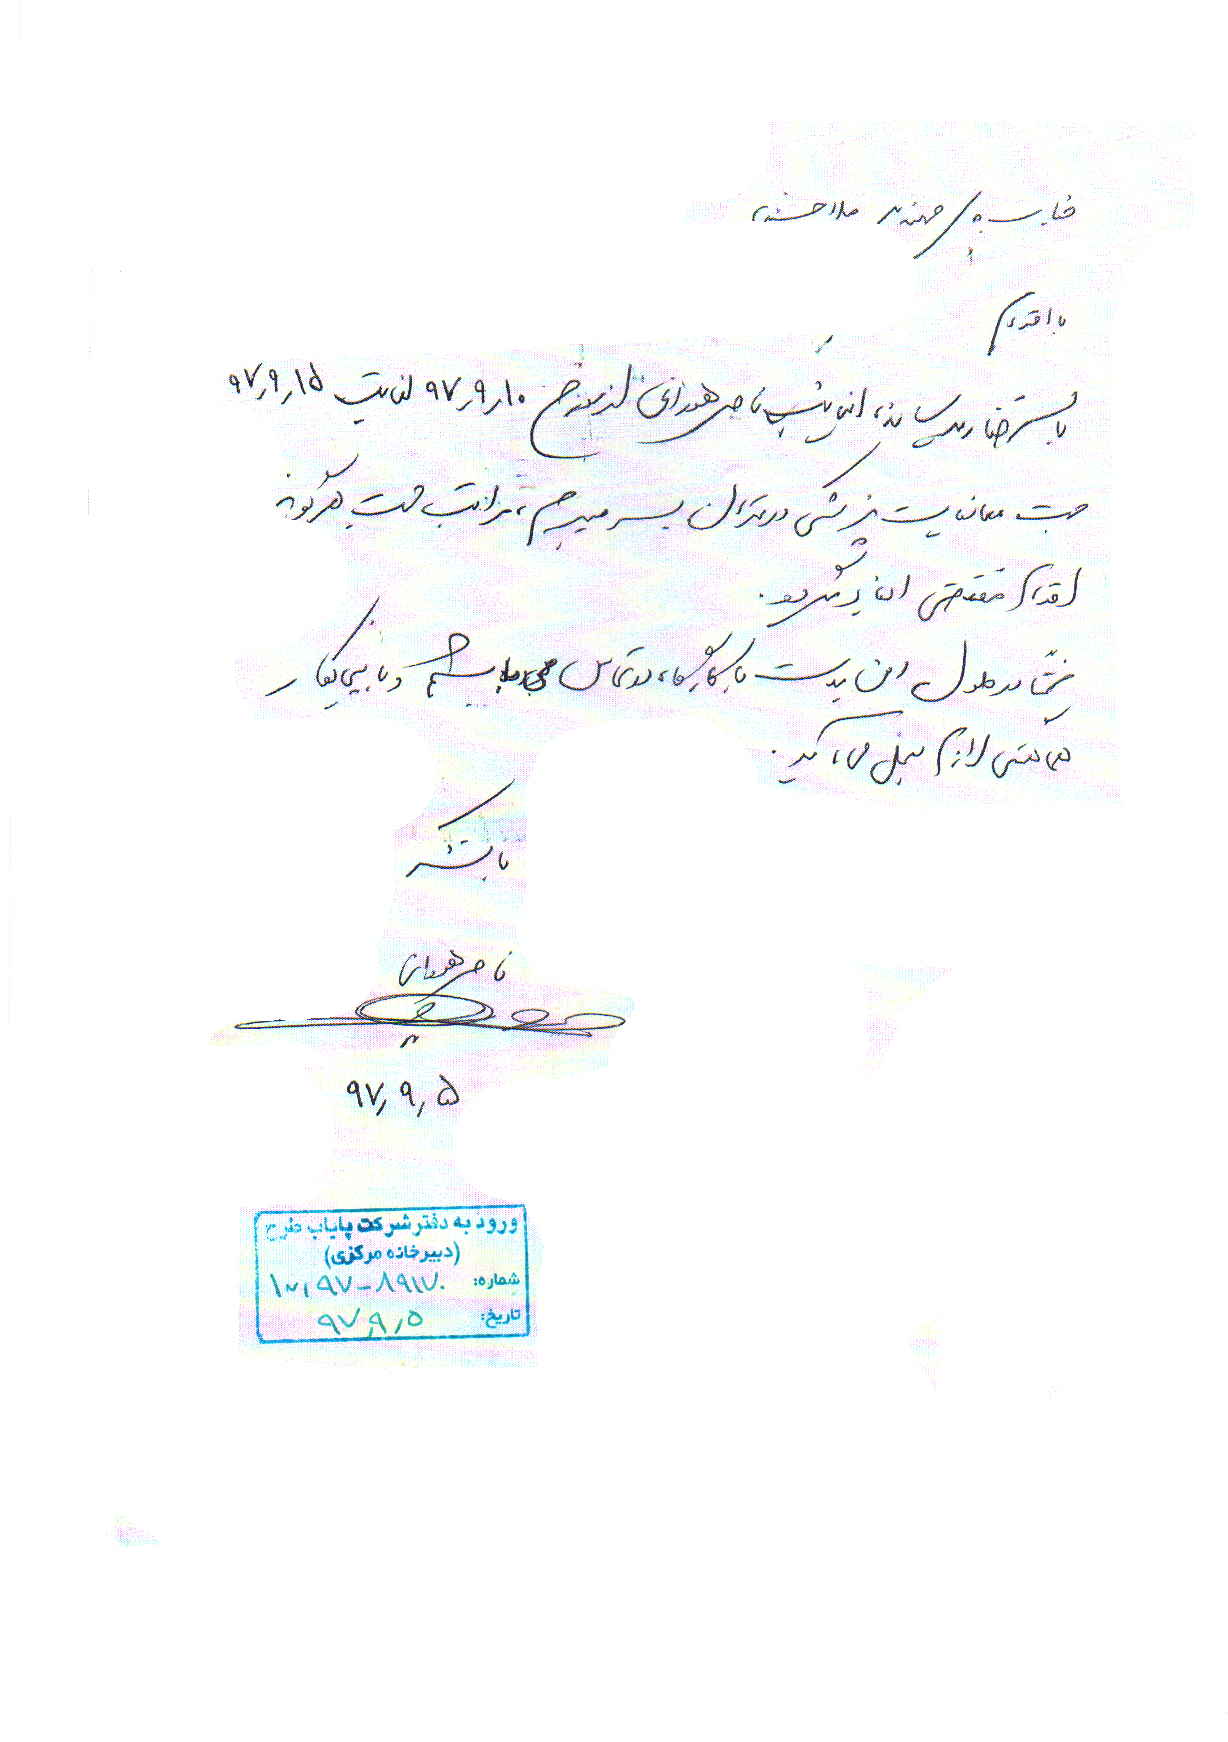 جناب مهندس ملاحسنی
با احترام
باستحضار میرساند، اینجانب ناصر همدانی از مورخ ۹۷,۹,۱۰ لغایت ۹۷,۹,۱۵
جهت معاینات پزشکی در تهران بسر میبرم، مراتب جهت هرگونه
اقدام مقتضی
ضمناً در طول این مدت با کارگاه در تماس می باشم و با
هماهنگی لازم بعمل می آید.
با تشکر
ناصر همدانی
۹۷,۹,۵
ورود به دفتر شرکت پایاب طرح
(دبیرخانه مرکزی)
شماره:
تاریخ: ۹۷,۹,۵